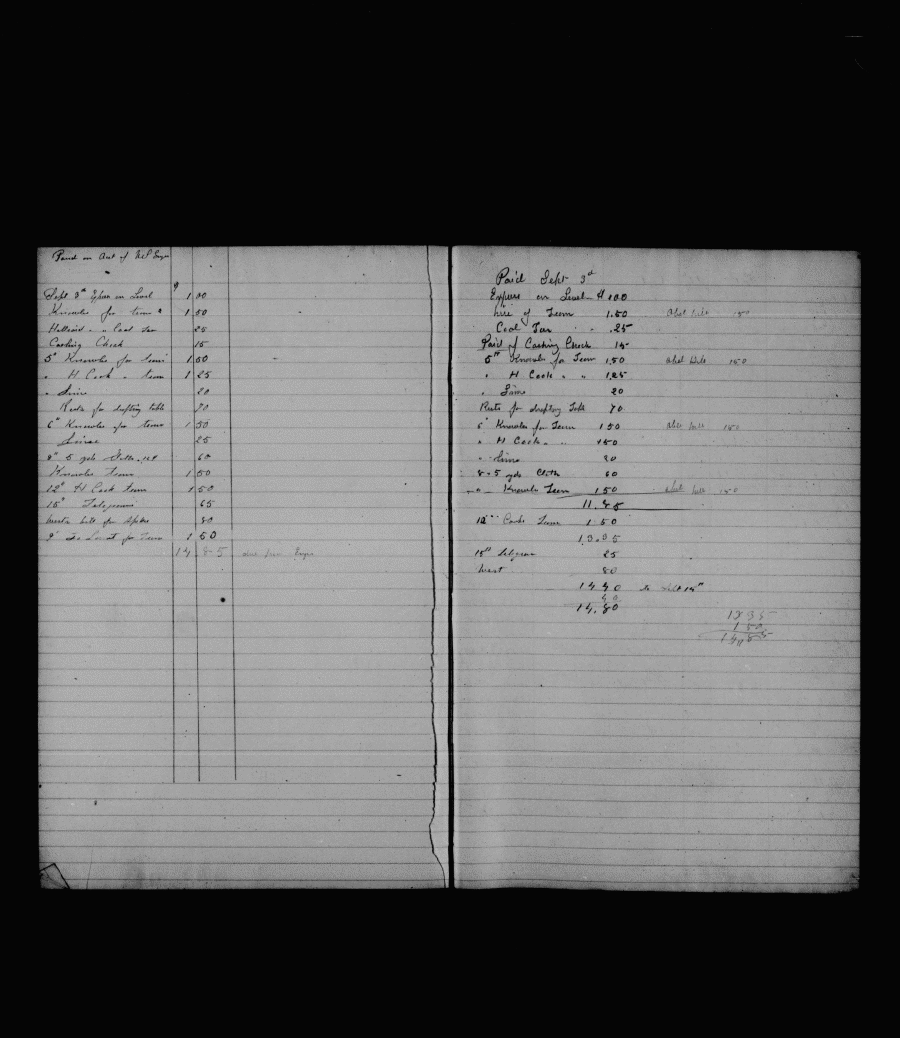 Paid on Act of
Sept. 3rd Express on Level $ 1 00
Knowles for team 1 50
Coal Tar 25
Cashing Check 15
5" Knowles for team 1 50
" H Cook " team 1 25
" Lime 20
Rule for drafting table 70
6" Knowles for team 1 50
Lime 25
8" 5 yds Cloth 60
Knowles team 1 50
12" H Cook team 1 50
15" Telegrams 65
bill for Spikes 80
9" for Team 1 50
14 85 due from
Paid Sept 3rd
Express on Level $ 1.00
hire of Team 1.50 150
Coal Tar " .25
Paid of Cashing Check 15
5th Knowles for Team 1.50 150
" H Cook " " 1.25
" Lime 20
Rule for drafting Tabl 70
6" Knowles for Team 1 50 150
" H Cook " " 1 50
" Lime 20
8 - 5 yds Cloth 60
" Knowls Team 1 50 150
11.85
12" Cooks Team 1 50
13.35
15" Telegram 25
West 80
14 40 to Sept 15"
40
14.80
1335
1 50
14.85